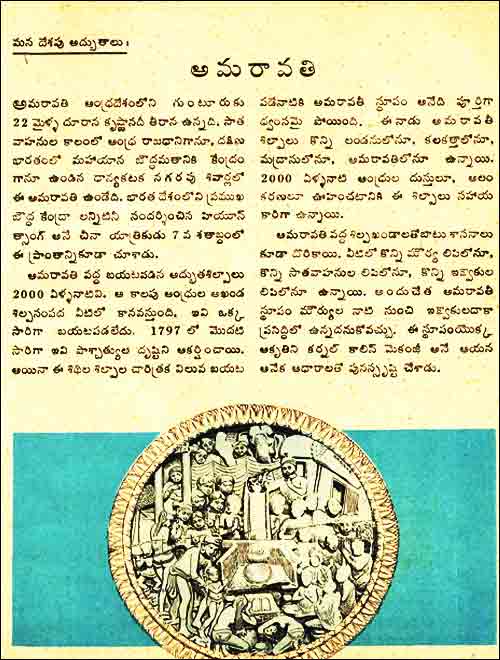 మన దేశపు అద్భుతాలు :
అమరావతి
అమరావతి ఆంధ్రదేశంలోని గుంటూరుకు
22 మైళ్ళ దూరాన కృష్ణానదీ తీరాన ఉన్నది. సాత
వాహనుల కాలంలో ఆంధ్ర రాజధానిగానూ, దక్షిణ
భారతంలో మహాయాన బౌద్ధమతానికి కేంద్రం
గానూ ఉండిన ధాన్యకటక నగరపు శివార్లలో
ఈ అమరావతి ఉండేది. భారత దేశంలోని ప్రముఖ
బౌద్ధ కేంద్రా లన్నిటినీ సందర్శించిన హయూన్
త్సాంగ్ అనే చీనా యాత్రికుడు 7 వ శతాబ్దంలో
ఈ ప్రాంతాన్నికూడా చూశాడు.
అమరావతి వద్ద బయటపడిన అద్భుతశిల్పాలు
2000 ఏళ్ళనాటివి. ఆ కాలపు ఆంధ్రుల అఖండ
శిల్పసంపద వీటిలో కానవస్తుంది. ఇవి ఒక్క
సారిగా బయటపడలేదు. 1797 లో మొదటి
సారిగా ఇవి పాశ్చాత్యుల దృష్టిని ఆకర్షించాయి.
అయినా ఈ శిథిల శిల్పాల చారిత్రక విలువ బయట
పడేనాటికి అమరావతీ స్థూపం అనేది పూర్తిగా
ధ్వంసమై పోయింది. ఈనాడు అమరావతీ
శిల్పాలు కొన్ని లండనులోనూ, కలకత్తాలోనూ,
మద్రాసులోనూ, అమరావతిలోనూ ఉన్నాయి.
2000 ఏళ్ళనాటి ఆంధ్రుల దుస్తులూ, అలం
కరణలూ ఊహించటానికి ఈ శిల్పాలు సహాయ
కారిగా ఉన్నాయి.
అమరావతి వద్ద శిల్పఖండాలతోబాటు శాసనాలు
కూడా దొరికాయి. వీటిలో కొన్ని మౌర్య లిపిలోనూ,
కొన్ని సాతవాహనుల లిపిలోనూ, కొన్ని ఇక్ష్వాకుల
లిపిలోనూ ఉన్నాయి. అందుచేత అమరావతీ
స్తూపం మౌర్యుల నాటి నుంచి ఇక్ష్వాకులదాకా
ప్రసిద్ధిలో ఉన్నదనుకోవచ్చు. ఈ స్తూపంయొక్క
ఆకృతిని కర్నల్ కాలిన్ మెకంజీ అనే ఆయన
అనేక ఆధారాలతో పునస్సృష్టి చేశాడు.